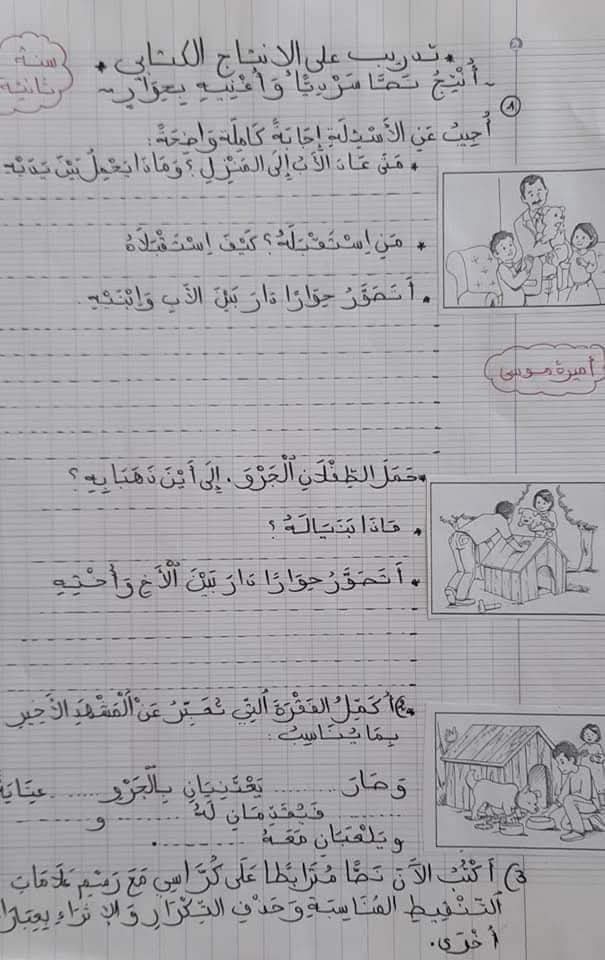 * تدريب على الانتاج الكتابي *
سنة ثانية
~ أُنْتِجُ نَصًّا سَرْدِيًّا وَأُغْنِيهِ بِحِوَارٍ ~
1
أُجِيبُ عَنِ الأَسْئِلَةِ إِجَابَةً كَامِلَةً وَاضِحَةً:
* مَتَى عَادَ الأَبُ إِلَى المَنْزِلِ؟ وَمَاذَا يَحْمِلُ بَيْنَ يَدَيْهِ
* مَنِ اِسْتَقْبَلَهُ؟ كَيْفَ اِسْتَقْبَلَاهُ
* أَتَصَوَّرُ حِوَارًا دَارَ بَيْنَ الأَبِ وَابْنَتِهِ.
أميرة موسى
* حَمَلَ الطِّفْلَانِ الْجَرْوَ. إِلَى أَيْنَ ذَهَبَا بِهِ؟
* مَاذَا بَنَيَا لَهُ؟
* أَتَصَوَّرُ حِوَارًا دَارَ بَيْنَ الْأَخِ وَأُخْتِهِ
2) أُكَمِّلُ الفَقْرَةَ الَّتِي تُعَبِّرُ عَنْ الْمَشْهَدِ الأَخِيرِ
بِمَا يُنَاسِبُ:
وَصَارَ ........ يَعْتَنِيَانِ بِالْجَرْوِ ...... عِنَايَةً
........ فَيُقَدِّمَانِ لَهُ ........ و ........
و يَلْعَبَانِ مَعَهُ ........
3) أَكْتُبُ الآنَ نَصًّا مُتَرَابِطًا عَلَى كُرَّاسِي مَعَ رَسْمِ عَلَامَاتِ
التَّنْقِيطِ المُنَاسِبَةِ وَحَذْفِ التِّكْرَارِ وَالإِثْرَاءِ بِعِبَارَاتٍ
أُخْرَى.